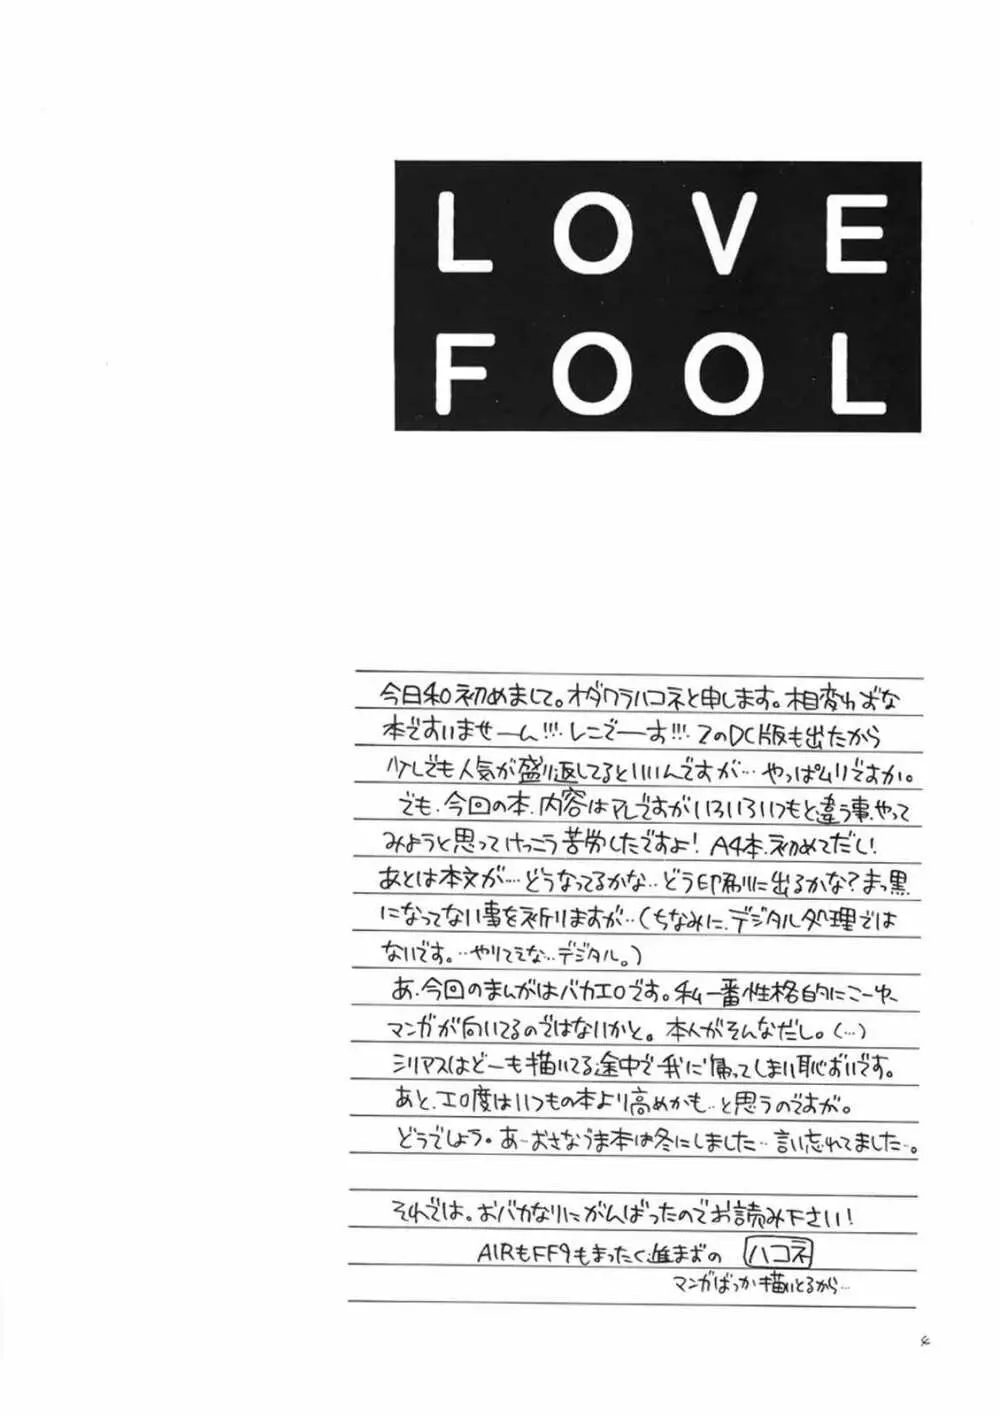 LOVE
FOOL
今日和初めまして。オダワラハコネと申します。相変わらずな
本ですいませーん!!!レニでーす!!!2のDC版も出たから
少しでも人気が盛り返してるといいんですが…やっぱムリですか。
でも、今回の本、内容はアレですがいろいろいつもと違う事、やって
みようと思ってけっこう苦労したですよ!A4本、初めてだし!
あとは本文が…どうなってるかな‥どう印刷に出るかな?まっ黒
になってない事を祈りますが‥(ちなみに、デジタル処理では
ないです。‥やりてえな…デジタル。)
あ、今回のまんがはバカエロです。私一番性格的にこーゆー
マンガが向いてるのではないかと。本人がそんなだし。(…)
シリアスはどーも描いてる途中で我に帰ってしまい恥ずいです。
あと、エロ度はいつもの本より高めかも‥と思うのですが。
どうでしょう。あーおさなづま本は冬にしました‥言い忘れてました‥。
それでは。おバカなりにがんばったのでお読み下さい!
AIRもFF9もまったく進まずの ハコネ
マンガばっか描いとるから…
4